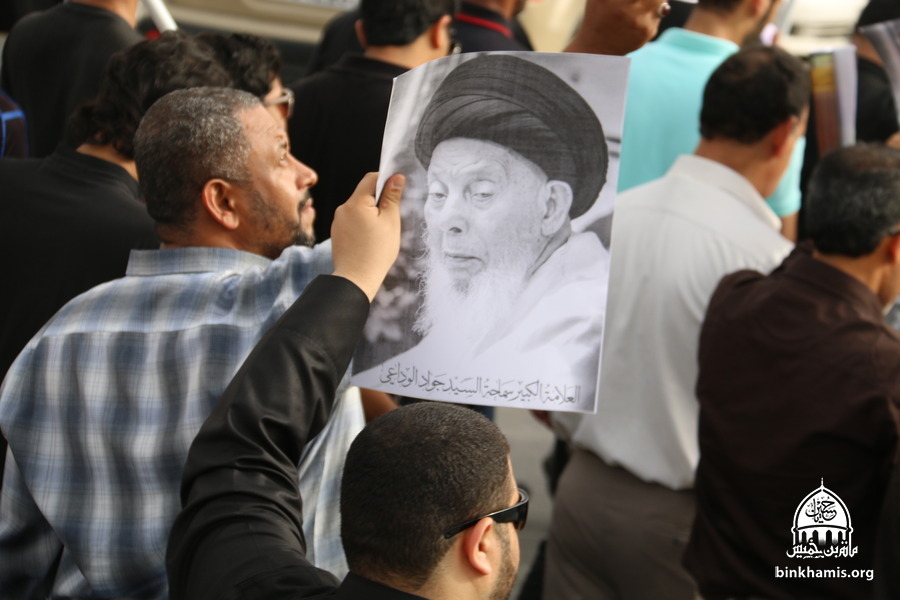 العلامة الكبير سماحة السيد جواد الوداعي
مأتم بن خميس
binkhamis.org